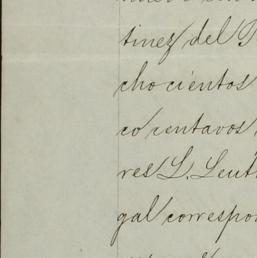 tinez del P
chocientos
co centavos,
res L. Leut
gal correspon